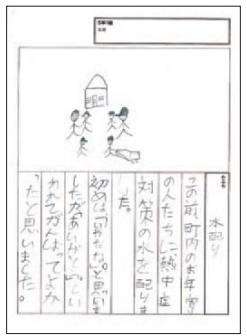 5年1組
名前
水配り
この前町内のお年寄
の人たちに熱中症
対策の水を配りま
した。
初めは「いやだな。」と思いま
したが「ありがとう」とい
われてがんばってよか
ったと思いました。